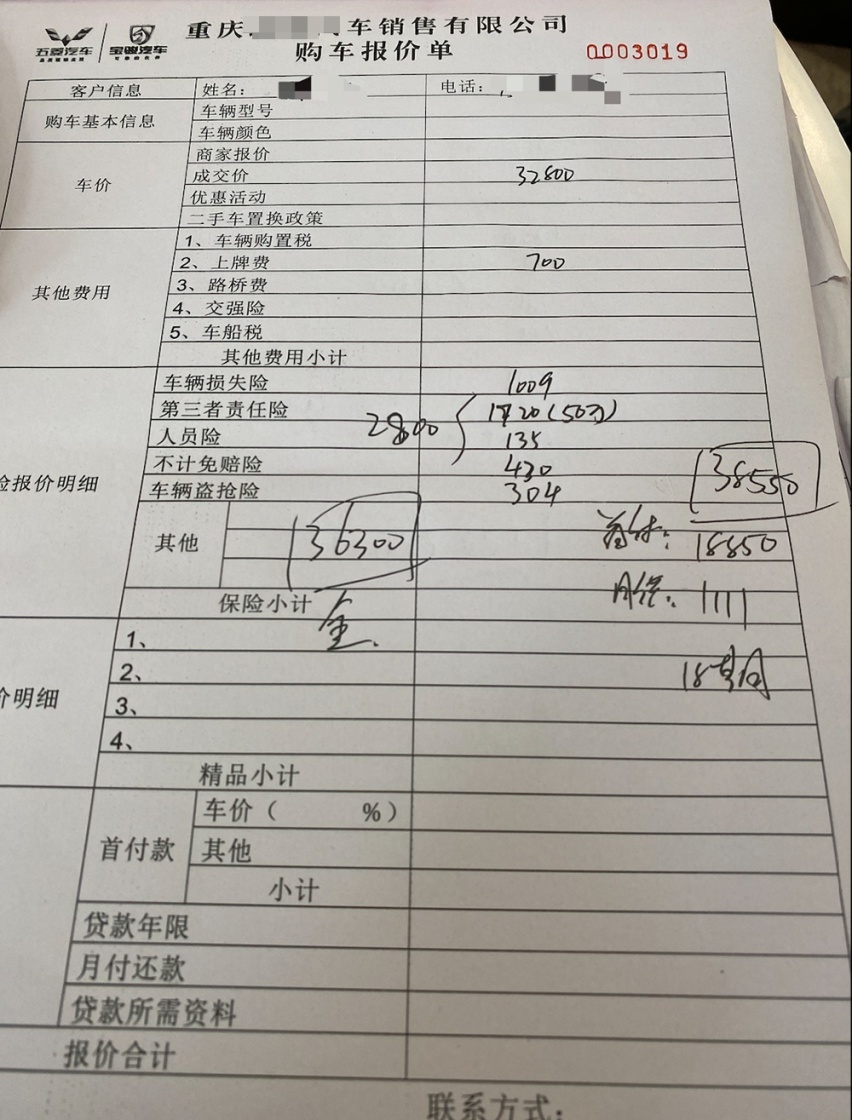 五菱汽车 宝骏汽车 重庆 汽车销售有限公司
购车报价单 0003019
客户信息 姓名： 电话：
购车基本信息 车辆型号
车辆颜色
车价 商家报价
成交价 32800
优惠活动
二手车置换政策
其他费用 1、车辆购置税
2、上牌费 700
3、路桥费
4、交强险
5、车船税
其他费用小计
车辆损失险 1009
第三者责任险 2800 1720(50万)
人员险 135
险报价明细 不计免赔险 430 38550
车辆盗抢险 304
其他 36300 首付: 18850
保险小计 全. 月供: 1111
1、
价明细 2、 18个月
3、
4、
精品小计
首付款 车价（ %）
其他
小计
贷款年限
月付还款
贷款所需资料
报价合计
联系方式：